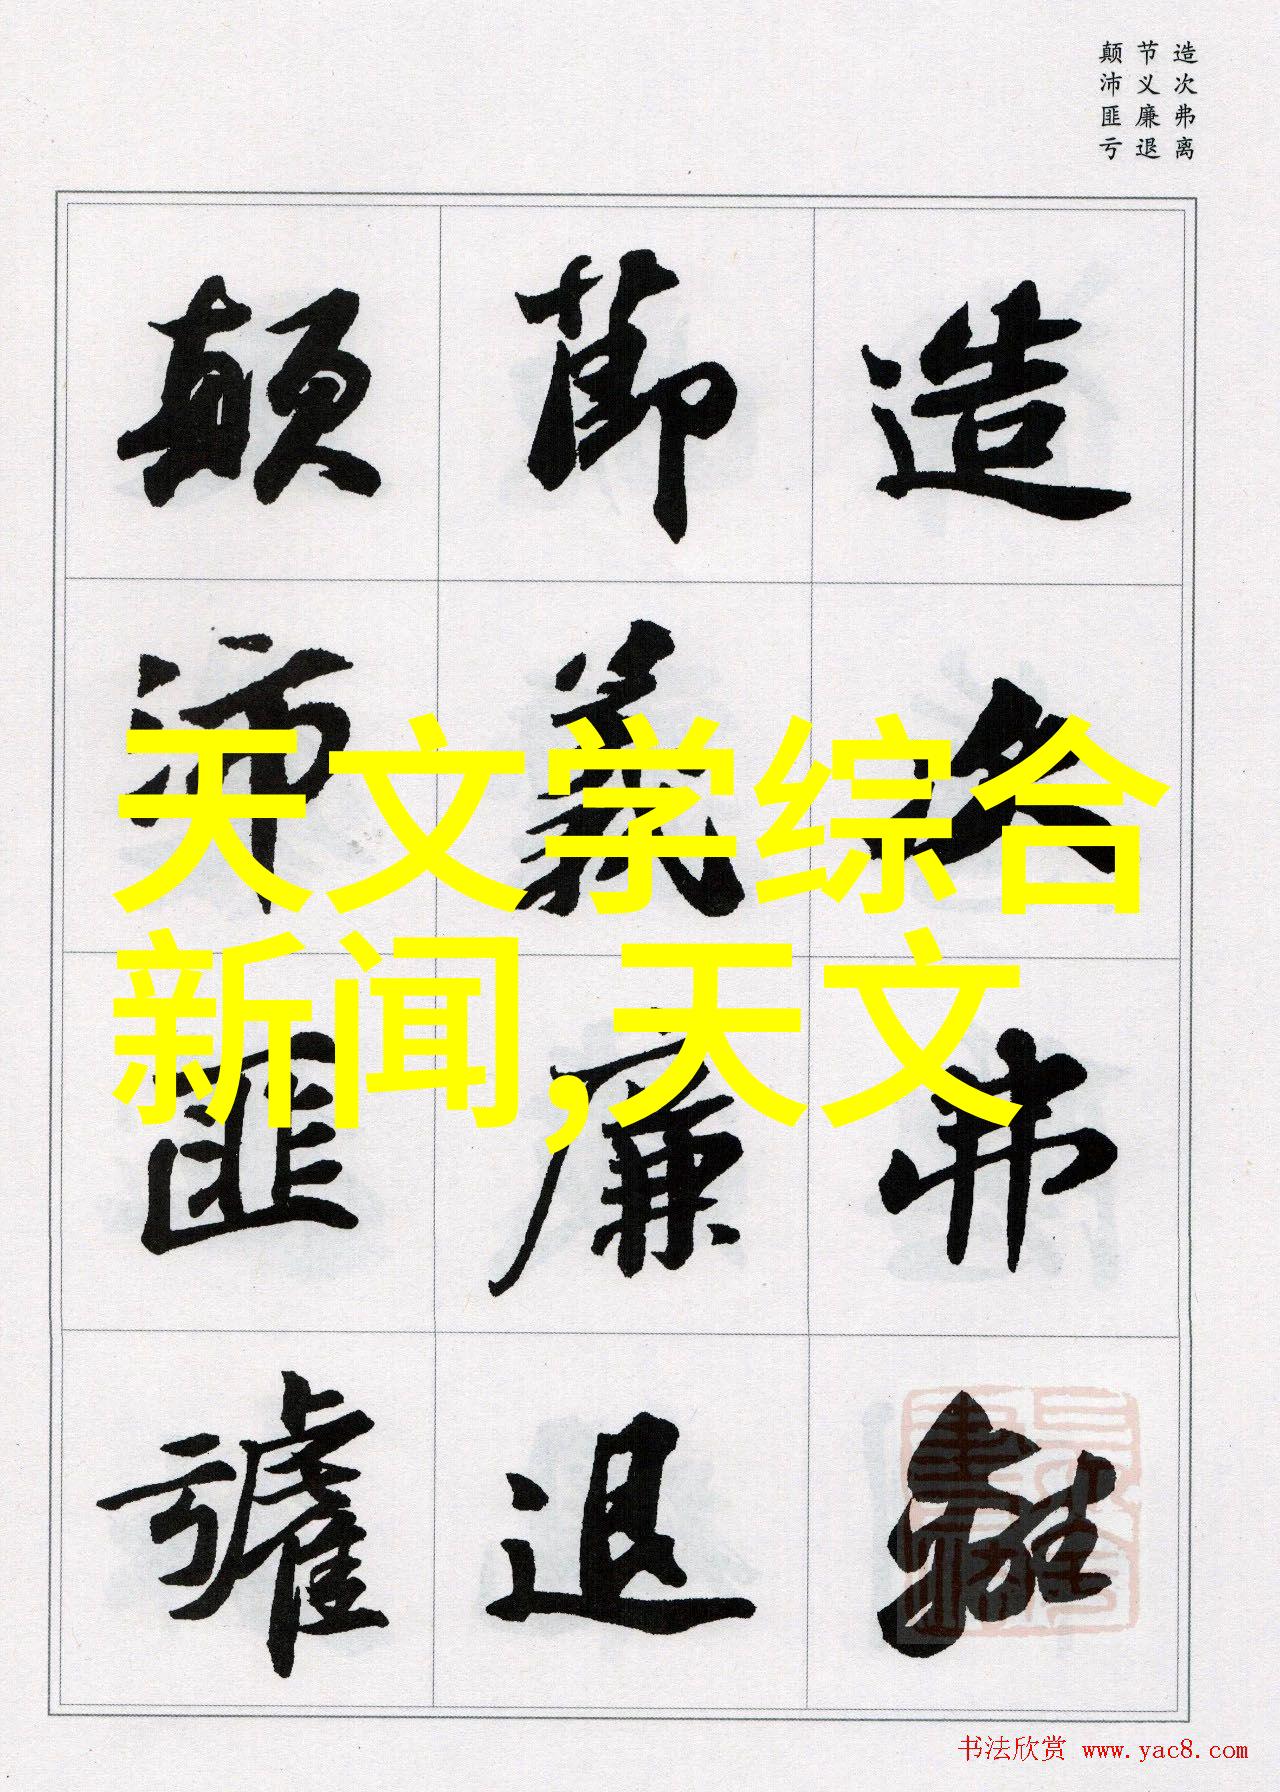 造次弗离
节义廉退
颠沛匪亏
造次弗離
節義廉退
顛沛匪虧
天文学综合
新闻,天文
书法欣赏 www.yac8.com